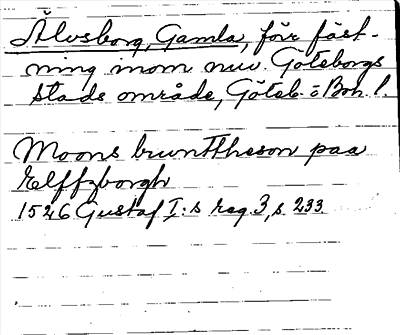 Älvsborg, Gamla, förr fäst-
ning inom nuv. Göteborgs
stads område, Göteb. o Boh. l.
Moons brunttheson paa
Elffzborgh
1526 Gustaf I:s reg. 3, s 233